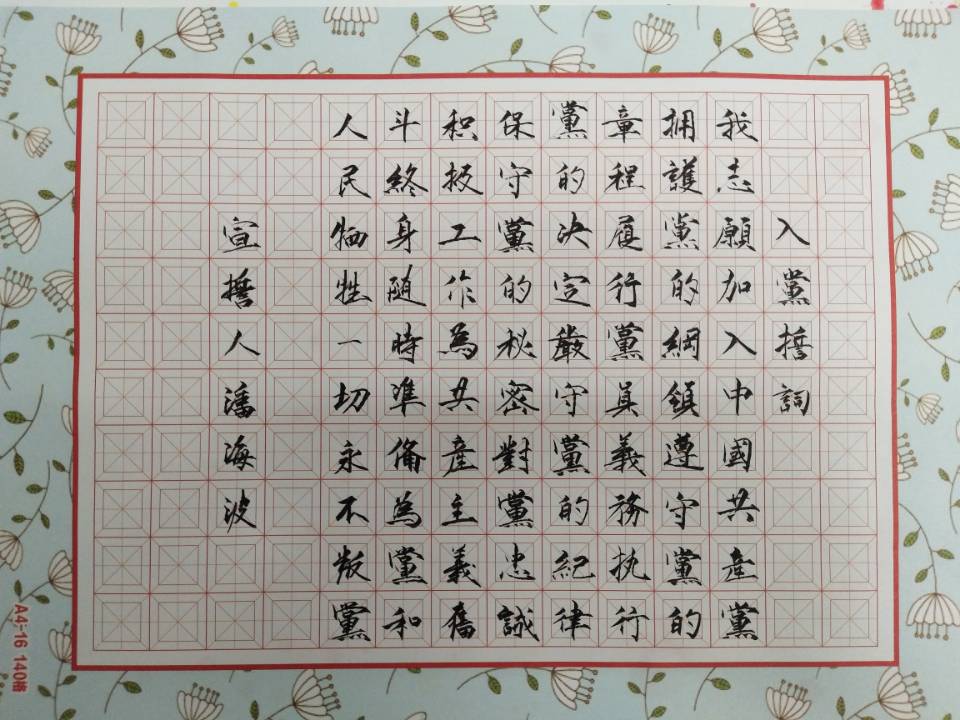 入黨誓詞
我志願加入中國共產黨
拥護黨的綱領遵守黨的
章程履行黨員義務执行
黨的决定嚴守黨的紀律
保守黨的秘密對黨忠誠
积极工作為共產主義奮
斗終身随時準備為黨和
人民牺牲一切永不叛黨
宣誓人潘海波
A4-16 140格